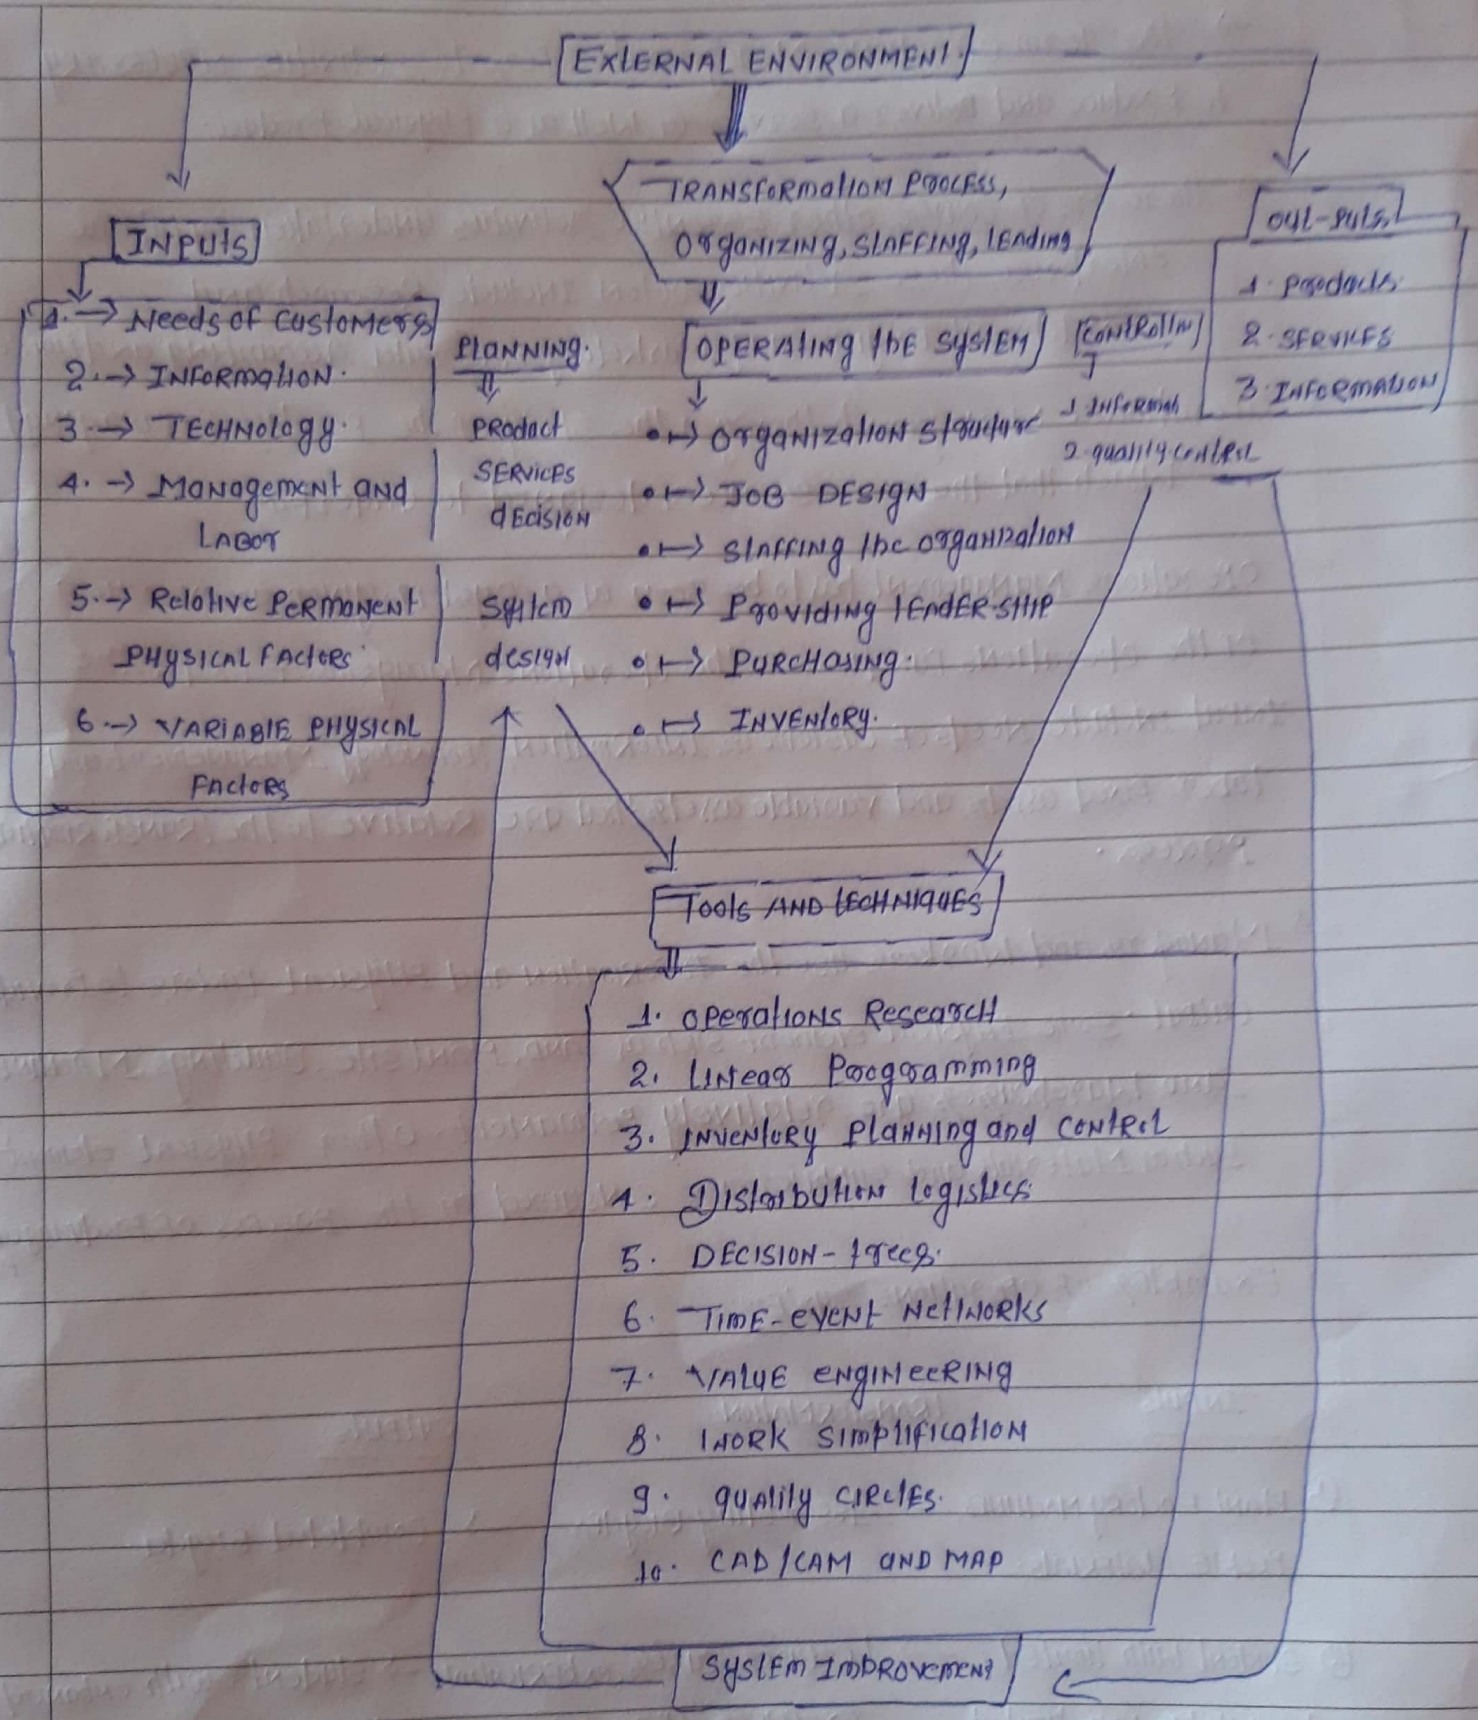 EXTERNAL ENVIRONMENT.
TRANSFORMATION PROCESS,
ORGANIZING, STAFFING, LEADING
INPUTS
1. → Needs of Customers
2. → INFORMATION.
3 → TECHNOLOGY.
4. → Management and
LABOR
5. → Relative PERMANENT
PHYSICAL FACTORS
6. → VARIABLE PHYSICAL
FACTORS
PLANNING.
PRODUCT
SERVICES
DECISION
SYSTEM
DESIGN
OPERATING THE SYSTEM
• → ORGANIZATION STRUCTURE
• → JOB DESIGN
• → STAFFING THE ORGANIZATION
• → PROVIDING LEADER-SHIP
• → PURCHASING.
• → INVENTORY.
CONTROLLIN
1 INFORMAN
2 quality CONTROL
OUT-PUTS
1. Products
2. SERVICES
3. INFORMATION
TOOLS AND TECHNIQUES
1. OPERATIONS RESEARCH
2. LINEAR PROGRAMMING
3. INVENTORY PLANNING and CONTROL
4. DISTRIBUTION LOGISTICS
5. DECISION-trees.
6. TIME-EVENT NETWORKS
7. VALUE ENGINEERING
8. WORK SIMPLIFICATION
9. QUALITY CIRCLES.
10. CAD/CAM AND MAP
SYSTEM IMPROVEMENT